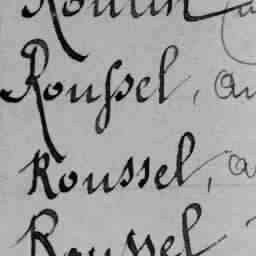 Rouſsel, au
Roussel, a
Roussel